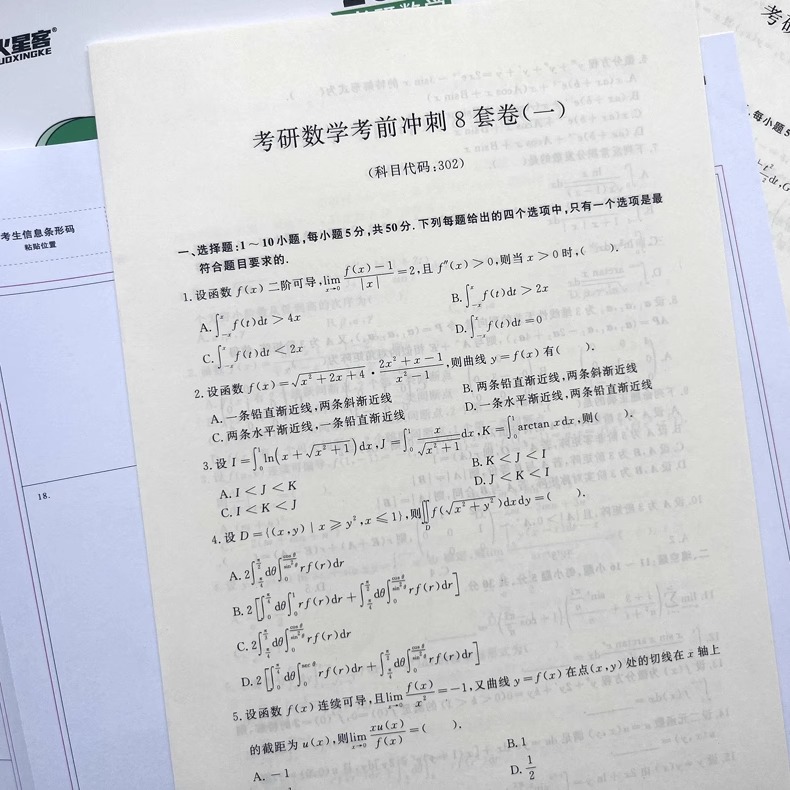 火星客
UOXINGKE
考研数学
考生信息条形码
粘贴位置
18.
考研数学考前冲刺 8 套卷(一)
(科目代码:302)
一、选择题:1～10 小题,每小题 5 分,共 50 分. 下列每题给出的四个选项中,只有一个选项是最
符合题目要求的.
1. 设函数 f(x) 二阶可导, lim_{x→0} (f(x)−1)/|x| = 2, 且 f″(x) > 0, 则当 x > 0 时, ( ).
A. ∫_{-x}^{x} f(t)dt > 4x
B. ∫_{-x}^{x} f(t)dt > 2x
C. ∫_{-x}^{x} f(t)dt < 2x
D. ∫_{-x}^{x} f(t)dt = 0
2. 设函数 f(x) = √(x²+2x+4) · (2x²+x−1)/(x²−1), 则曲线 y = f(x) 有( ).
A. 一条铅直渐近线,两条斜渐近线
B. 两条铅直渐近线,两条斜渐近线
C. 两条水平渐近线,一条铅直渐近线
D. 一条水平渐近线,两条铅直渐近线
3. 设 I = ∫_0^1 ln(x + √(x²+1)) dx, J = ∫_0^1 x/√(x²+1) dx, K = ∫_0^1 arctan x dx, 则( ).
A. I < J < K
B. K < J < I
C. I < K < J
D. J < K < I
4. 设 D = {(x,y) | x ⩾ y², x ⩽ 1}, 则∬_D f(√(x²+y²)) dxdy = ( ).
A. 2∫_{π/4}^{π/2} dθ ∫_0^{cosθ/sin²θ} rf(r)dr
B. 2[∫_0^{π/4} dθ ∫_0^1 rf(r)dr + ∫_{π/4}^{π/2} dθ ∫_0^{cosθ/sin²θ} rf(r)dr]
C. 2∫_{π/4}^{π/2} dθ ∫_0^{cosθ/sin²θ} rf(r)dr
D. 2[∫_0^{π/4} dθ ∫_0^{secθ} rf(r)dr + ∫_{π/4}^{π/2} dθ ∫_0^{cosθ/sin²θ} rf(r)dr]
5. 设函数 f(x) 连续可导, 且 lim_{x→0} f(x)/x² = −1, 又曲线 y = f(x) 在点(x,y) 处的切线在 x 轴上
的截距为 u(x), 则 lim_{x→0} xu(x)/f(x) = ( ).
A. −1
B. 1
D. 1/2
考
每小题 5